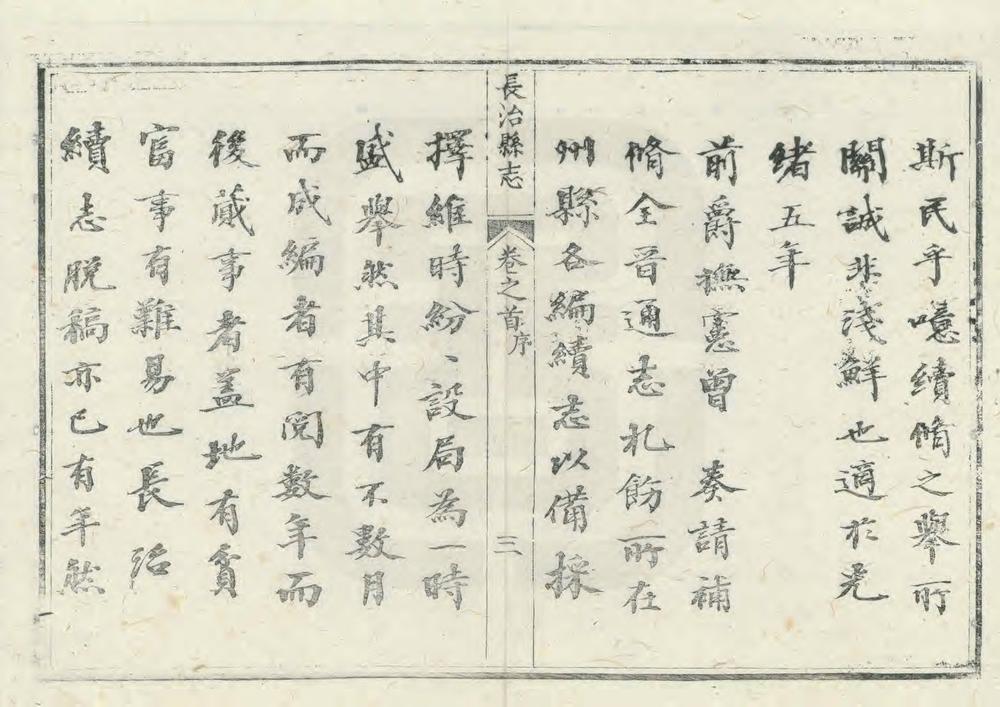 斯民乎噫續脩之舉所
關誠非淺鮮也適於光
緒五年
前爵撫憲曾　奏請補
脩全晉通志札飭所在
州縣各編續志以備採
長治縣志　卷之首序　三
擇維時紛、設局為一時
盛舉然其中有不數月
而成編者有閱數年而
後蕆事者蓋地有貧
富事有難易也長治
續志脫稿亦已有年然